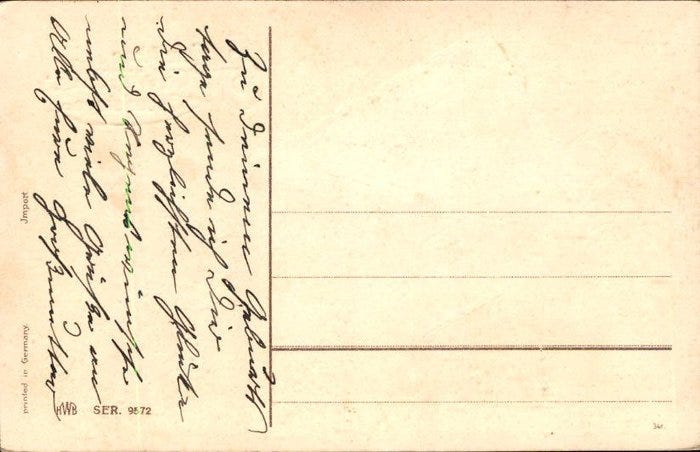 Zu Deinem Geburts
tage sende ich Dir
die herzlichsten Glück
und Segenswünsche
nebst viele Grüße an
Alle Eure Großmutter
Jmport
printed in Germany.
HWB SER. 9572